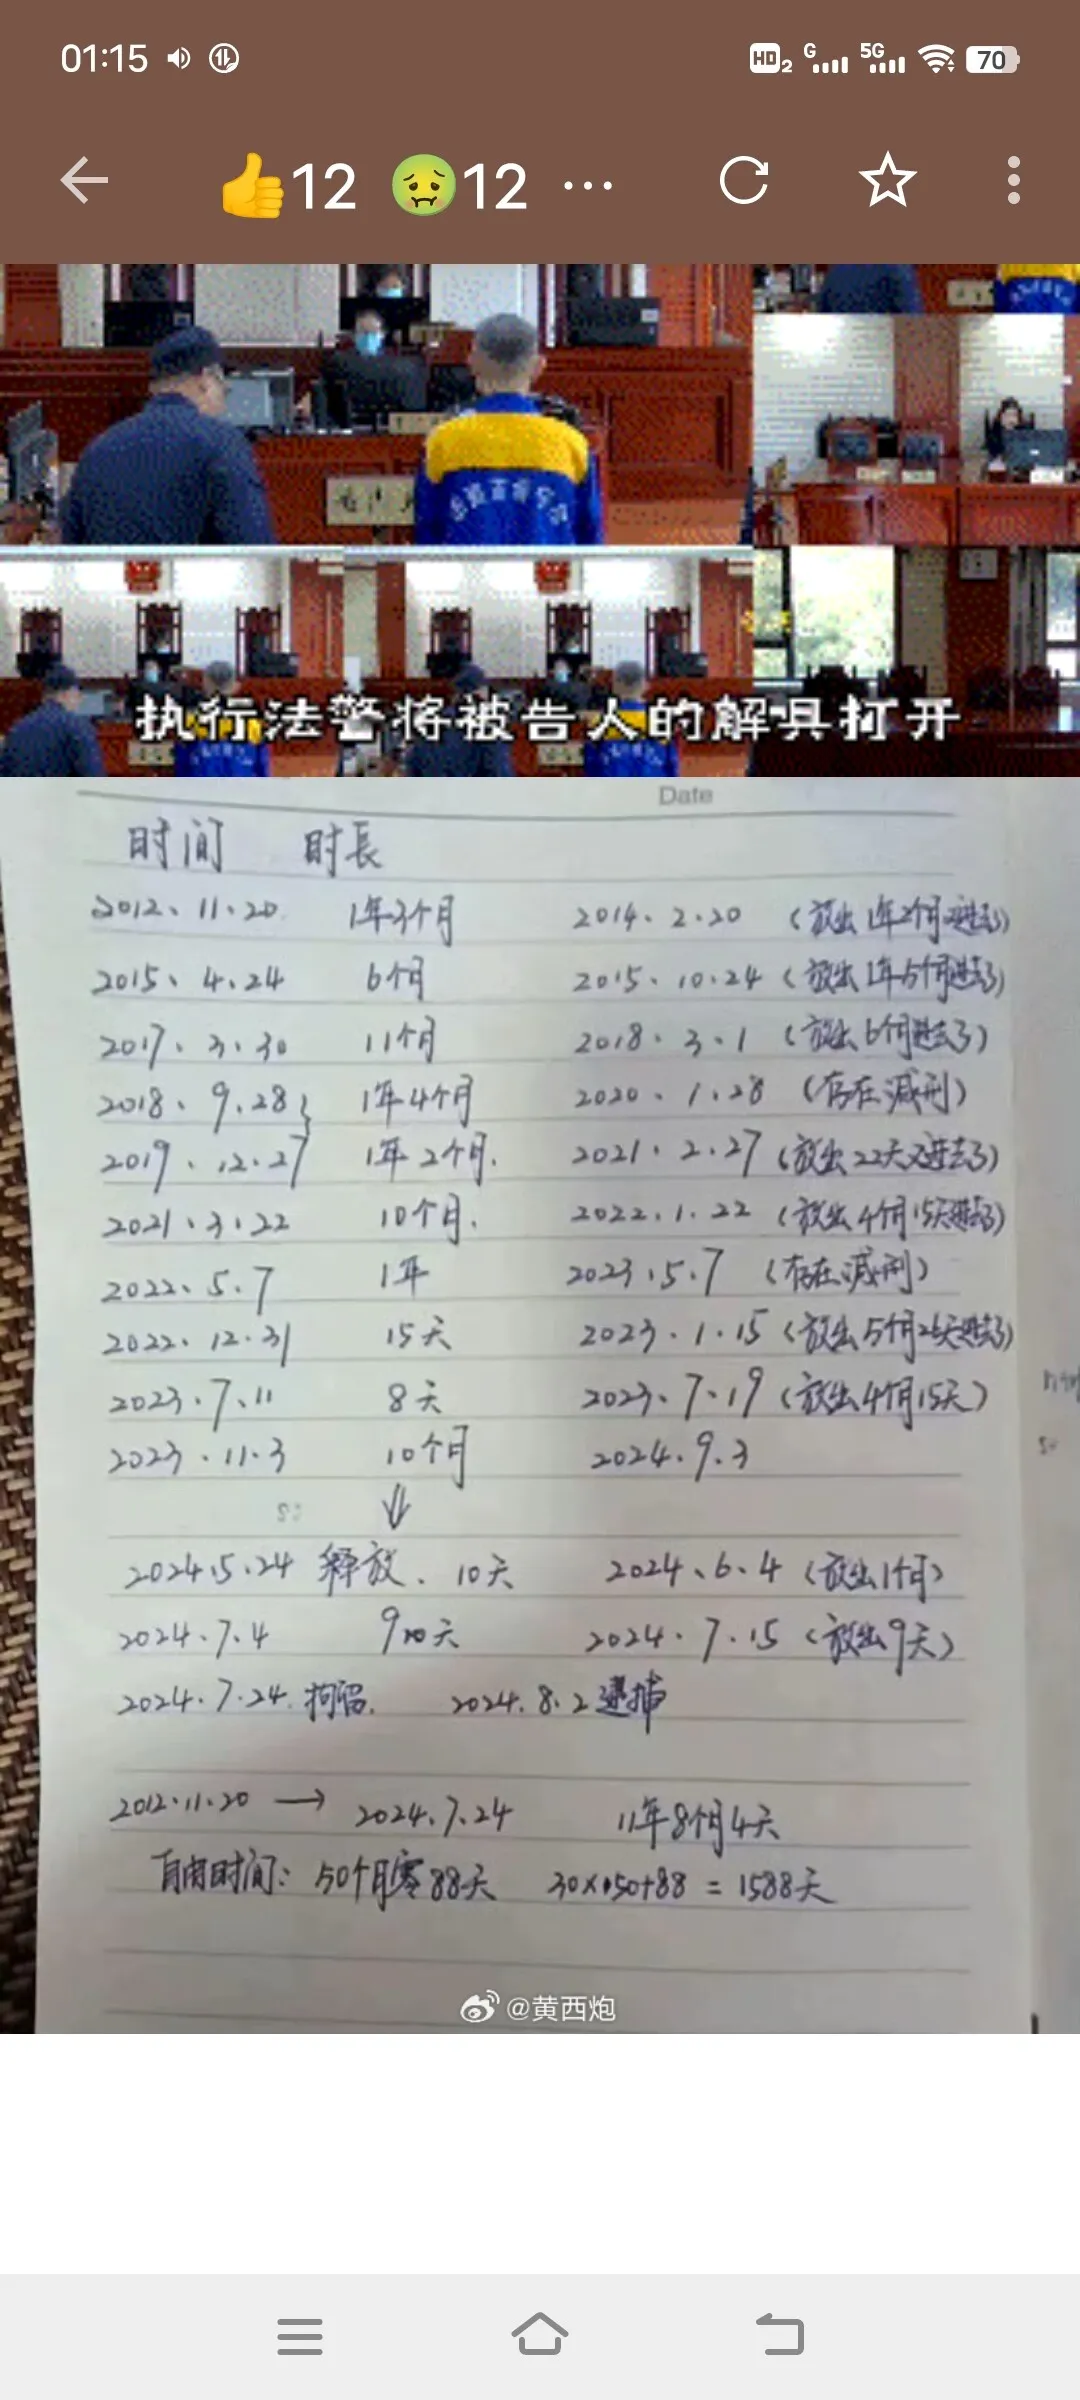 01:15
HD 2 G 5G 70
👍12 🤢12 ...
执行法警将被告人的解具打开
Date
时间 时長
2012、11.20 1年3个月 2014.2.20 (放出1年2个月又进去了)
2015、4.24 6个月 2015.10.24 (放出1年5个月进去了)
2017.3.30 11个月 2018.3.1 (放出6个月进去了)
2018、9.28 1年4个月 2020.1.28 (存在减刑)
2019.12.27 1年2个月. 2021.2.27 (放出22天又进去了)
2021.3.22 10个月. 2022.1.22 (放出4个月15天进去了)
2022.5.7 1年 2023.5.7 (存在减刑)
2022.12.31 15天 2023.1.15 (放出5个月26天进去了)
2023.7.11 8天 2023.7.19 (放出4个月15天)
2023.11.3 10个月 2024.9.3
↓
2024.5.24 释放. 10天 2024.6.4 (放出1个月)
2024.7.4 天 2024.7.15 (放出9天)
2024.7.24.拘留. 2024.8.2逮捕
2012.11.20 → 2024.7.24 11年8个月4天
自由时间: 50个月零88天 30×50+88=1588天
@黄西炮